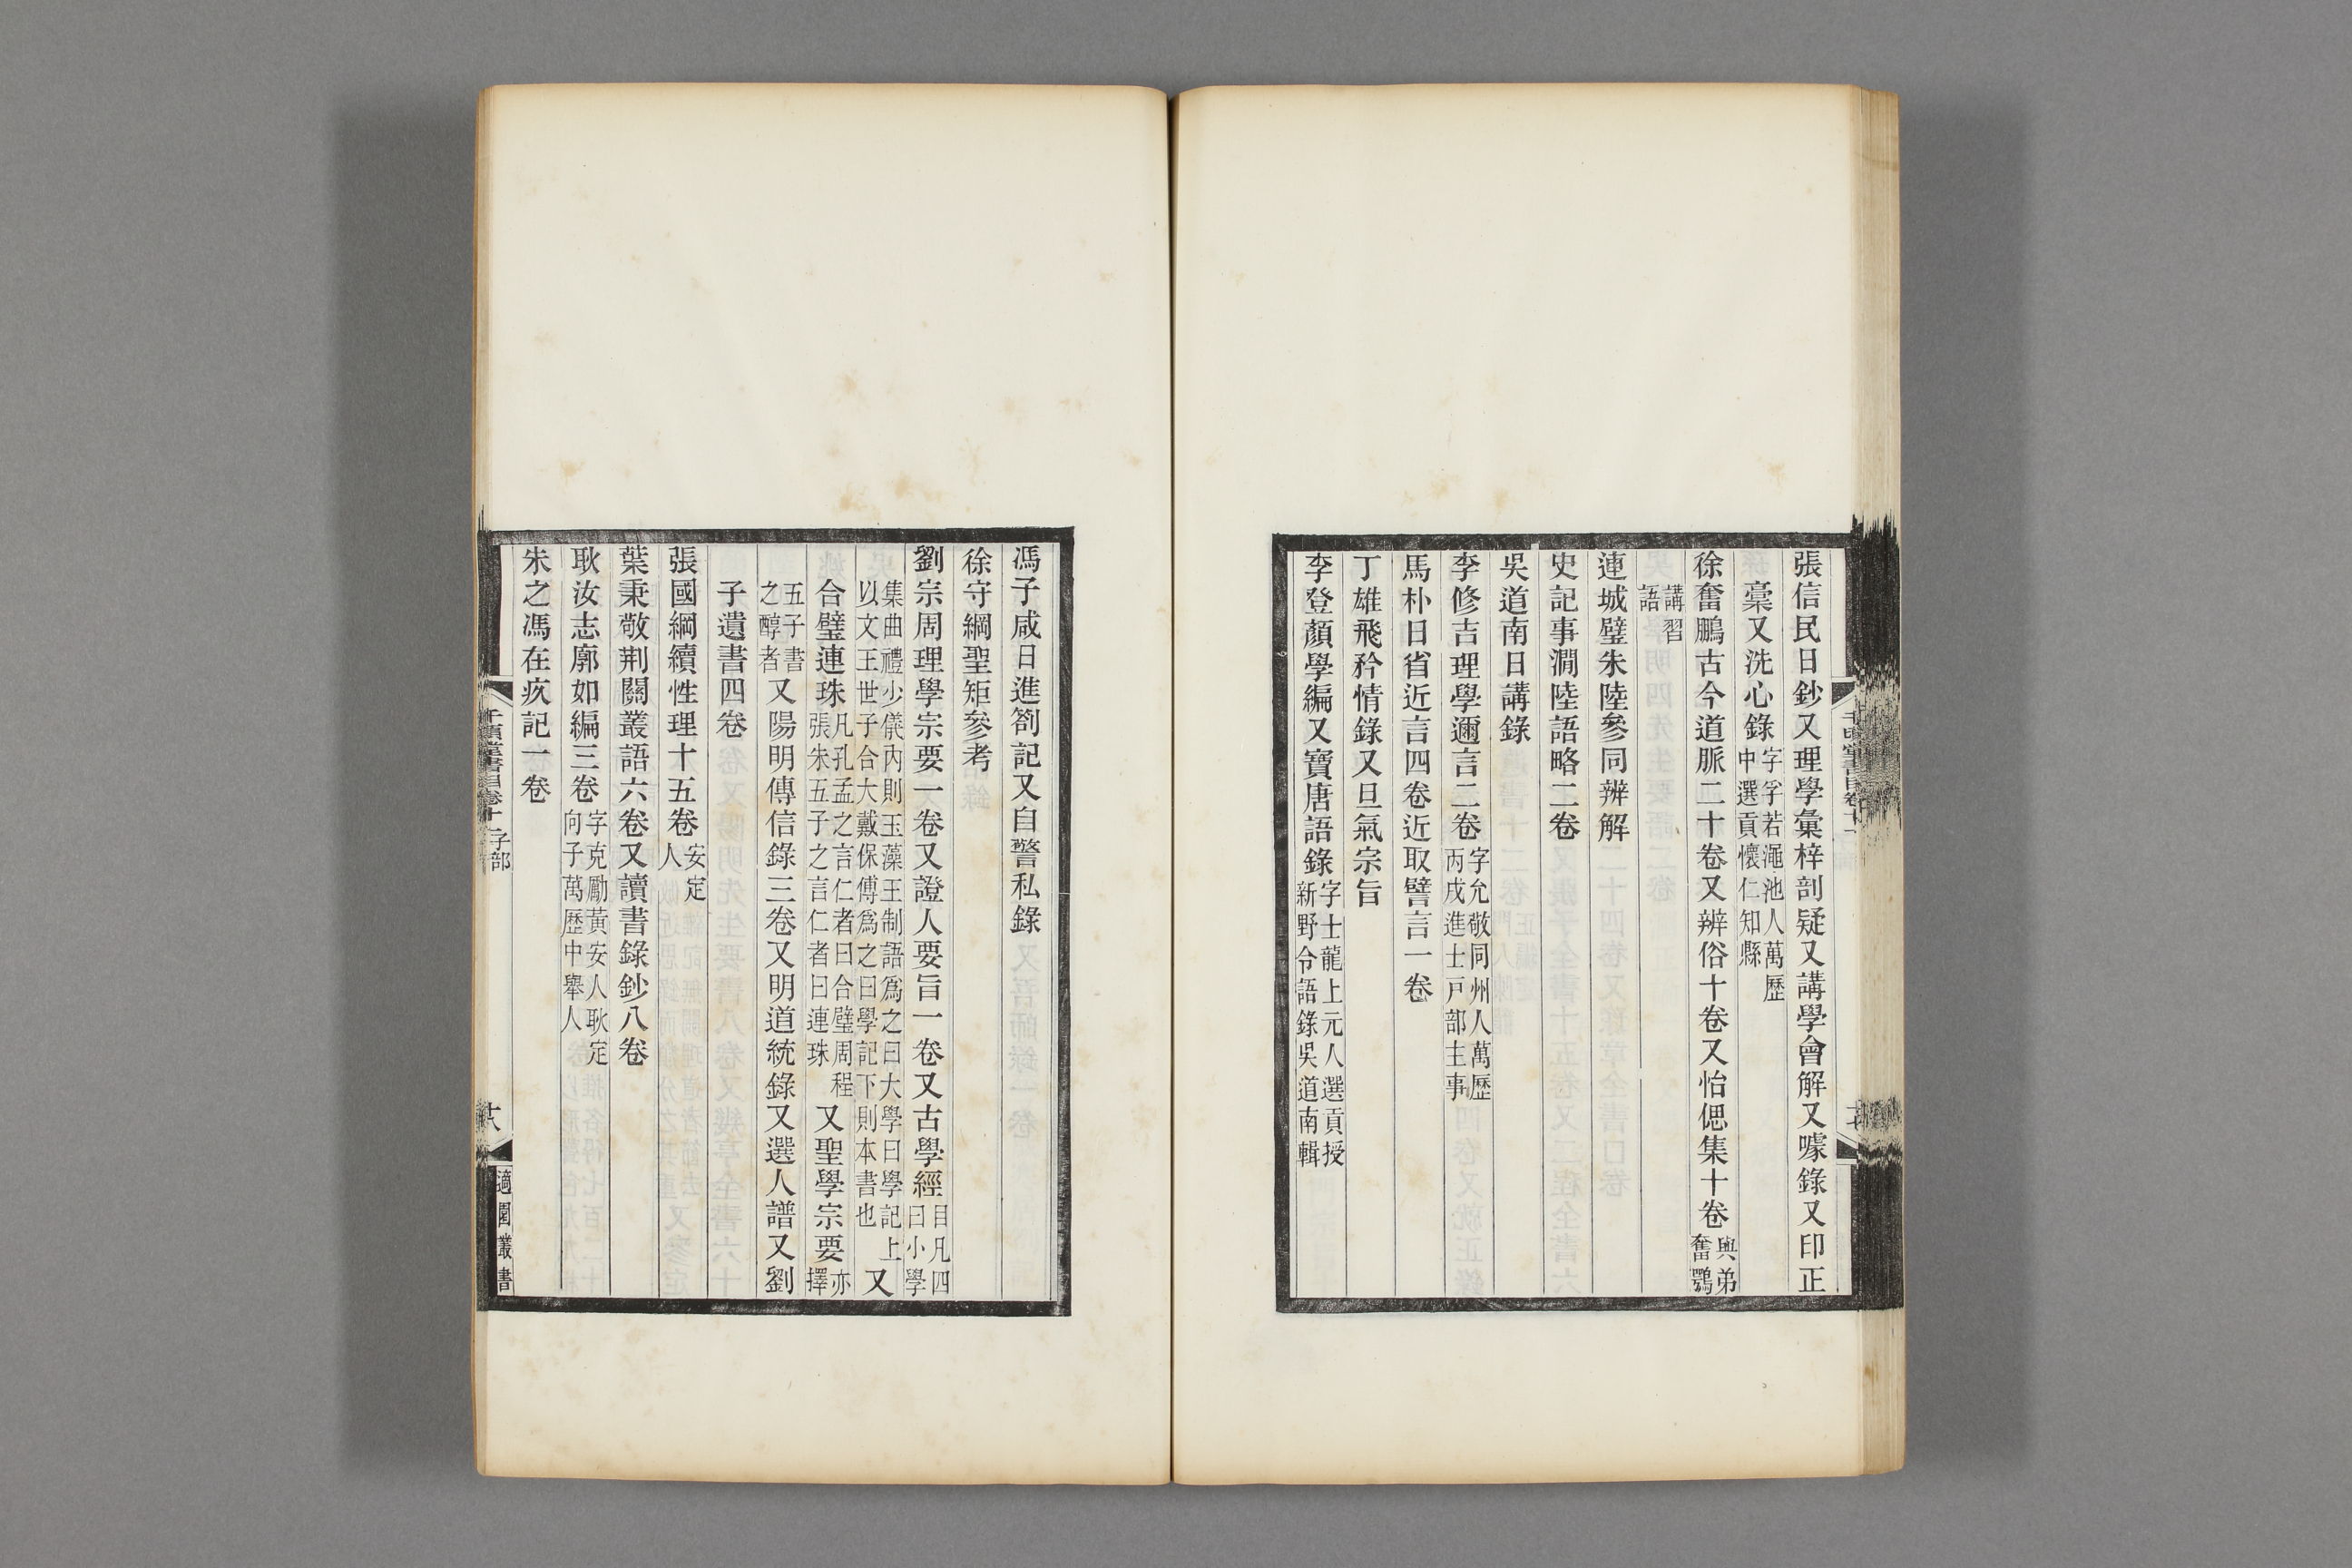 張信民日鈔又理學彙梓剖疑又講學會解又噱錄又印正
稾又洗心錄字孚若澠池人萬歷中選貢懷仁知縣
徐奮鵬古今道脈二十卷又辨俗十卷又怡偲集十卷與弟奮鶚
講習語
連城璧朱陸參同辨解
史記事澗陸語略二卷
吳道南日講錄
李修吉理學邇言二卷字允敬同州人萬歷丙戌進士戸部主事
馬朴日省近言四卷近取譬言一卷
丁雄飛矜情錄又旦氣宗旨
李登顏學編又寶唐語錄字士龍上元人選貢授新野令語錄吳道南輯
馮子咸日進劄記又自警私錄
徐守綱聖矩參考
劉宗周理學宗要一卷又證人要旨一卷又古學經目凡四曰小學
集曲禮少儀內則玉藻王制語爲之曰大學曰學記上以文王世子合大戴保傅爲之曰學記下則本書也又
合璧連珠凡孔孟之言仁者曰合璧周程張朱五子之言仁者曰連珠又聖學宗要亦擇
五子書之醇者又陽明傳信錄三卷又明道統錄又選人譜又劉
子遺書四卷
張國綱續性理十五卷安定人
葉秉敬荆關叢語六卷又讀書錄鈔八卷
耿汝志廓如編三卷字克勵黃安人耿定向子萬歷中舉人
朱之馮在疚記一卷
千頃堂書目卷十一子部
十八
適園叢書